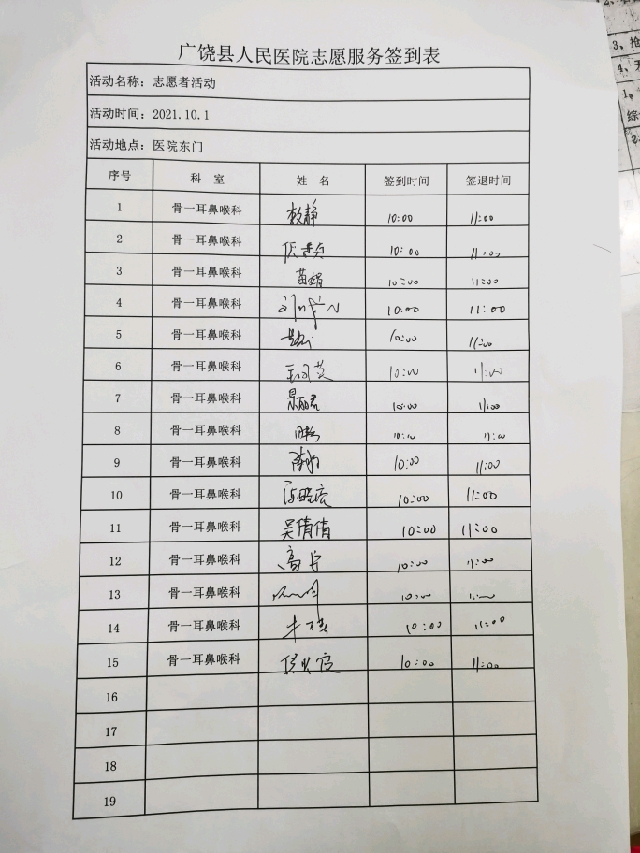 广饶县人民医院志愿服务签到表
活动名称：志愿者活动
活动时间：2021.10.1
活动地点：医院东门
序号 科 室 姓 名 签到时间 签退时间
1 骨一耳鼻喉科 静 10:00 11:00
2 骨一耳鼻喉科 10:00 11:00
3 骨一耳鼻喉科 苗娟 10:00 11:00
4 骨一耳鼻喉科 10:00 11:00
5 骨一耳鼻喉科 10:00 11:00
6 骨一耳鼻喉科 10:00 11:00
7 骨一耳鼻喉科 10:00 11:00
8 骨一耳鼻喉科 10:00 11:00
9 骨一耳鼻喉科 10:00 11:00
10 骨一耳鼻喉科 10:00 11:00
11 骨一耳鼻喉科 吴倩倩 10:00 11:00
12 骨一耳鼻喉科 高宁 10:00 11:00
13 骨一耳鼻喉科 10:00 11:00
14 骨一耳鼻喉科 10:00 11:00
15 骨一耳鼻喉科 10:00 11:00
16
17
18
19